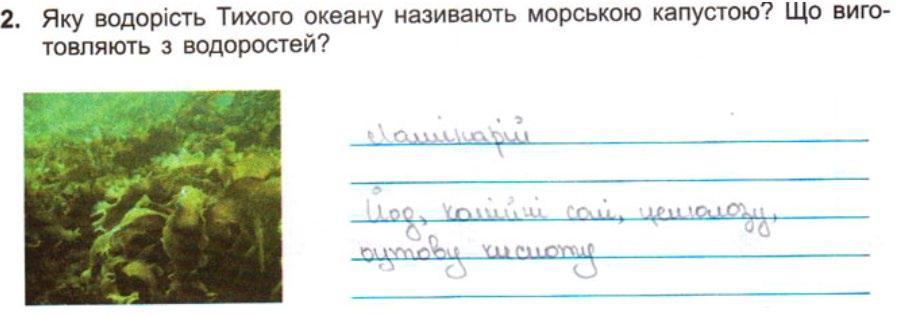 2. Яку водорість Тихого океану називають морською капустою? Що виго-
товляють з водоростей?
Ламінарій
Йод, калійні солі, целюлозу,
оцтову кислоту